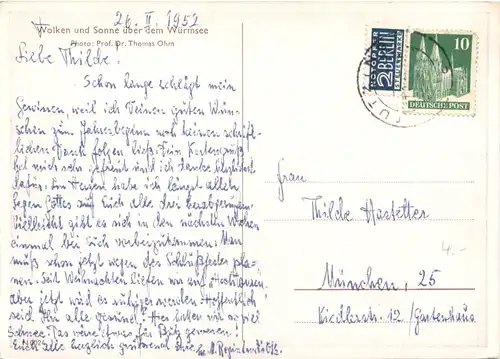 26. II. 1952
Wolken und Sonne über dem Würmsee
Photo: Prof. Dr. Thomas Ohm
Liebe Thilde!
Schon lange schlägt mein
Gewissen weil ich Deinen guten Wün-
schen zum Jahresbeginn noch keinen schrift-
lichen Dank folgen ließ. Dein Kartengruß
hat mich sehr gefreut und ich danke herzlichst
dafür. Im Herzen habe ich längst allen
Segen Gottes auf Euch alle drei herabgerufen.
Vielleicht gibt es sich in den nächsten Wochen
einmal bei Euch vorbeizukommen. Man
muß schon jetzt wegen des
Seit Weihnachten liefen wir auf Hochtouren,
aber jetzt wird es ruhiger werden. Hoffentlich
seid Ihr alle gesund! Hier hatten wir so viel
Schnee. Das wäre etwas für gewesen!
Euch alle herzlich grüßend Eure
NOTOPFER
2 BERLIN
STEUERMARKE
10
DEUTSCHE POST
Frau
Thilde Hastetter
4.-
München, 25
/Gartenhaus